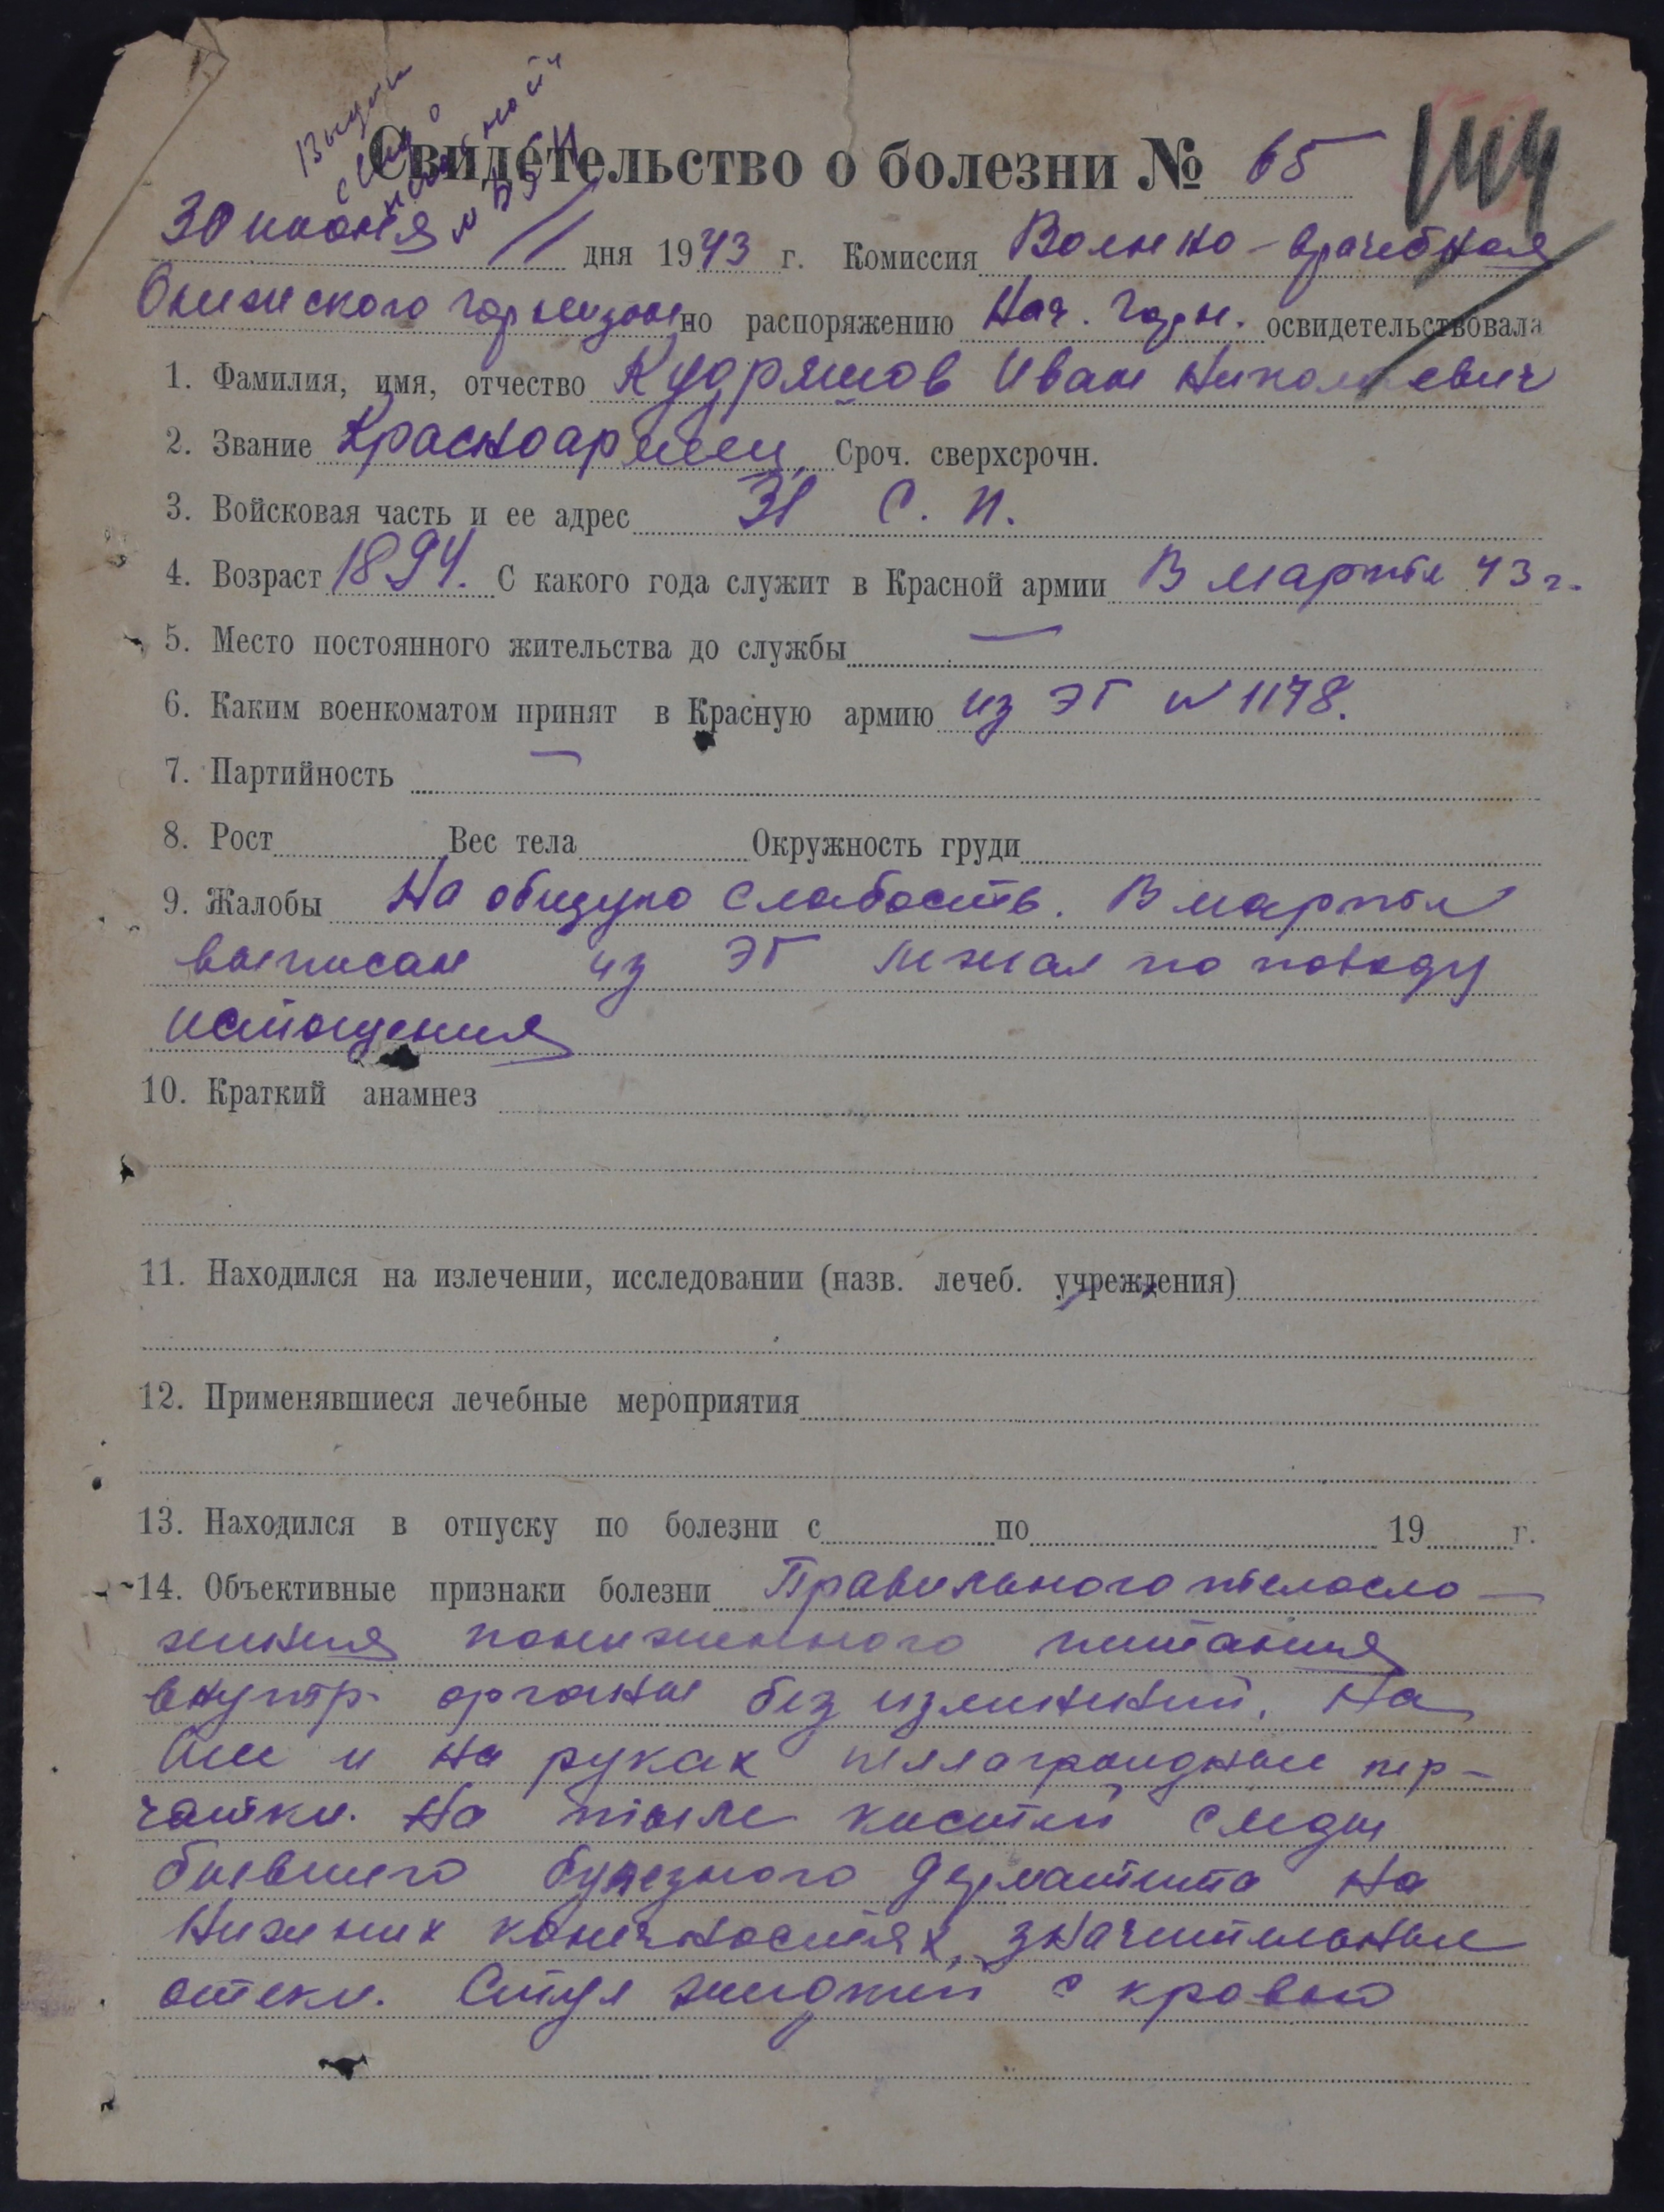 144
Свидетельство о болезни № 65
30 июня дня 1943 г. Комиссия Военно-врачебная
гарнизона по распоряжению Нач. Гарн. освидетельствовала
1. Фамилия, имя, отчество Кудряшов Иван Николаевич
2. Звание Красноармеец Сроч. сверхсрочн.
3. Войсковая часть и ее адрес 31 С. П.
4. Возраст 1894. С какого года служит в Красной армии В марте 43 г.
5. Место постоянного жительства до службы —
6. Каким военкоматом принят в Красную армию из ЭГ № 1178.
7. Партийность —
8. Рост Вес тела Окружность груди
9. Жалобы На общую слабость. В марте
выписан из ЭГ лежал по поводу
истощения
10. Краткий анамнез
11. Находился на излечении, исследовании (назв. лечеб. учреждения)
12. Применявшиеся лечебные мероприятия
13. Находился в отпуску по болезни с по 19 г.
14. Объективные признаки болезни Правильного телосло-
жения пониженного питания
внутр. органы без изменений. На
шее и на руках пеллагроидные пер-
чатки. На тыле кистей следы
бывшего булезного дерматита На
нижних конечностях, значительные
отеки. Стул жидкий с кровью